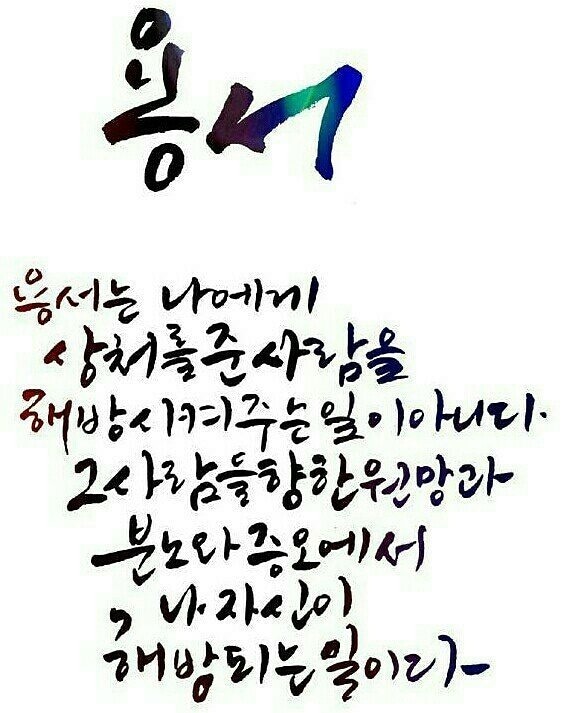 용서
용서는 나에게
상처를 준 사람을
해방시켜주는 일이 아니다.
그 사람들 향한 원망과
분노와 증오에서
, 나 자신이
해방되는 일이다